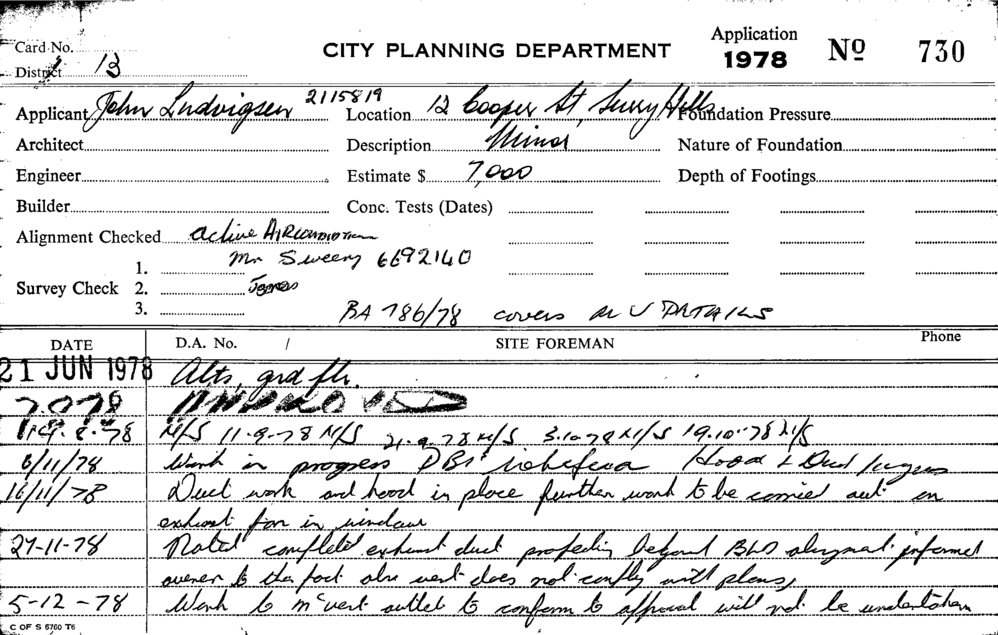 Card No.
CITY PLANNING DEPARTMENT
Application
1978 Nº 730
District 13
Applicant John Ludvigsen 2115819 Location 12 Cooper St, Surry Hills Foundation Pressure
Architect Description Minor Nature of Foundation
Engineer Estimate $ 7,000 Depth of Footings
Builder Conc. Tests (Dates)
Alignment Checked Active
Mr Sweeny 6692140
1.
Survey Check 2.
3.
BA 786/78 covers
DATE D.A. No. / SITE FOREMAN Phone
21 JUN 1978 Alts, grd flr.
7.8
8-78 N/S 11-9-78 N/S 21.9.78 N/S 3.10.78 N/S 19.10.78 N/S
6/11/78 Work in progress Hood & Duct
16/11/78 Duct work and hood in place further work to be carried out on
exhaust fan in window
27-11-78 Noted completed exhaust duct beyond informed
owner to the fact also vent does not comply with plans,
5-12-78 Work to vent outlet to conform to approval will not be undertaken
C OF S 6760 T6